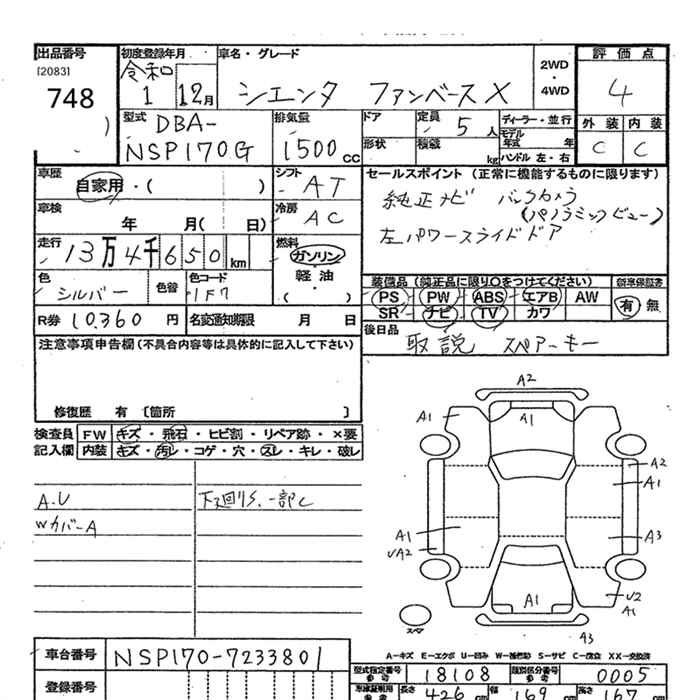 出品番号 初度登録年月 車名・グレード 評価点
[2083] 令和 1 12月 シエンタ ファンベースX 2WD・4WD 4
748 型式 DBA- 排気量 ドア 定員 5人 ディーラー・並行 外装 内装
NSP170G 1500cc 形状 積載 kg モデル年式 年 ハンドル 左・右 C C
車歴 自家用・( ) シフト AT セールスポイント (正常に機能するものに限ります)
車検 年 月( 日) 冷房 AC 純正ナビ バックカメラ
(パノラミックビュー)
走行 13万4千650km 燃料 ガソリン 左パワースライドドア
軽油・( )
色 シルバー 色替 色コード 1F7 装備品(純正品に限り〇をつけてください) 新車保証書
PS PW ABS エアB AW 有 無
R券 10,360円 名変通知期限 月 日 SR ナビ TV カワ
注意事項申告欄(不具合内容等は具体的に記入して下さい) 後日品 取説 スペアーキー
修復歴 有 [箇所 ]
検査員 FW キズ・飛石・ヒビ割・リペア跡・×要
記入欄 内装 キズ・汚レ・コゲ・穴・スレ・キレ・破レ
A.U 下廻りS.一部C
WカバーA
A2
A1 A1
A2
A1
A1 A3
UA2
A1 U2
A1
スペア A3
A-キズ E-エクボ U-凹み W-補修跡 S-サビ C-腐食 XX-交換済
車台番号 NSP170-7233801 型式指定番号 参考 18108 類別区分番号 参考 0005
登録番号 車庫証明用 参考 長さ 426cm 幅 169cm 高さ 167cm